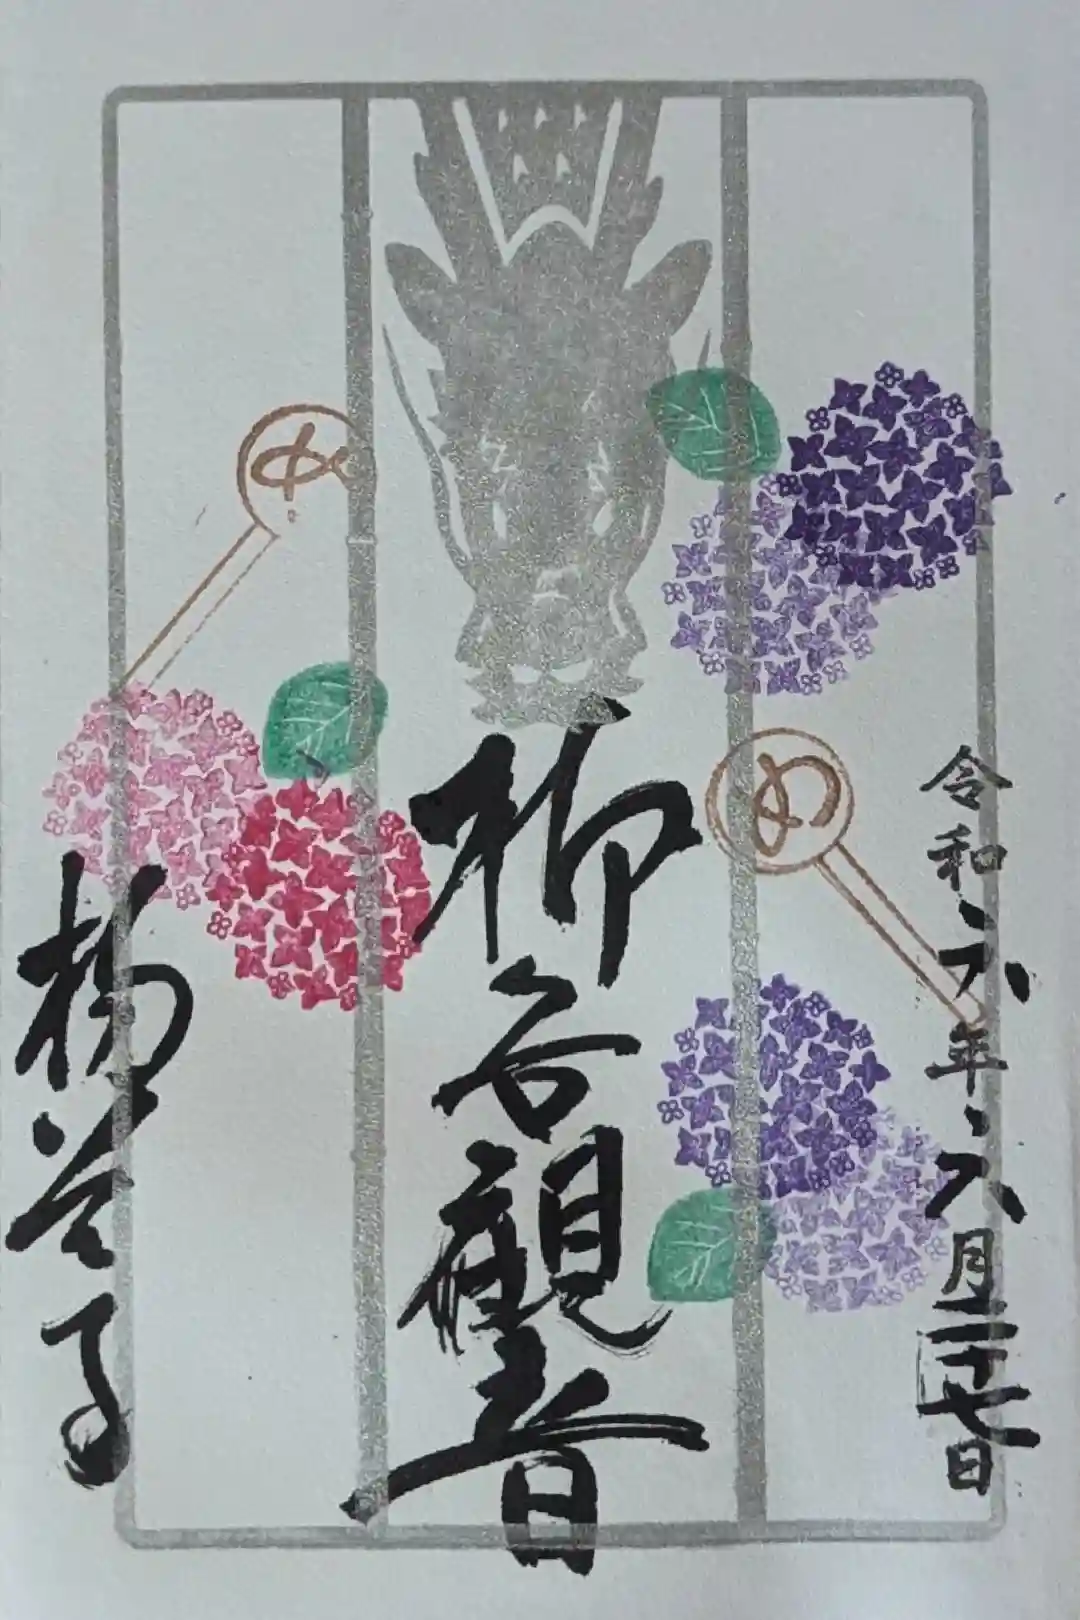 令和六年六月二十七日
め
柳谷観音
め
楊谷寺